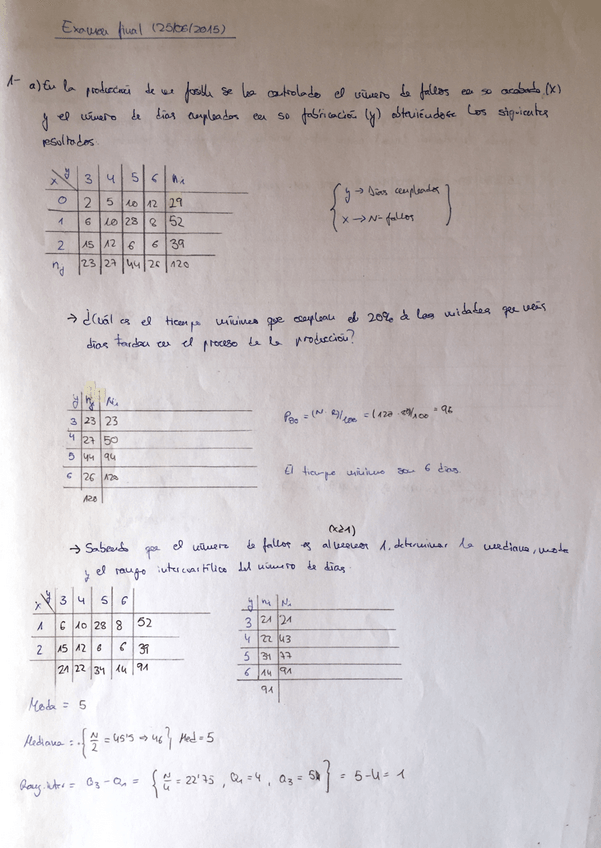 Examen final (25/06/2015)
1- a) En la producción de un se ha controlado el número de fallos en su acabado, (x)
y el número de días empleados en su fabricación (y) obteniéndose los siguientes
resultados
x y 3 4 5 6 ni
0 2 5 10 12 29
1 6 10 28 8 52
2 15 12 6 6 39
nj 23 27 44 26 120
y → Días empleados
x → Nº fallos
→ ¿Cuál es el tiempo mínimo que emplean el 20% de las unidades que más
días tardan en el proceso de la producción?
y nj Ni
3 23 23
4 27 50
5 44 94
6 26 120
120
P80 = (N· )/100 = (120· )/100 = 96
El tiempo mínimo son 6 días
(x≥1)
→ Sabiendo que el número de fallos es al menos 1, determinar la mediana, moda
y el rango intercuartílico del número de días.
x y 3 4 5 6
1 6 10 28 8 52
2 15 12 6 6 39
21 22 34 14 91
y ni Ni
3 21 21
4 22 43
5 34 77
6 14 91
91
Moda = 5
Mediana = { N/2 = 45'5 ⇒ 46 } Med = 5
Rang.inter = Q3 - Q1 = { N/4 = 22'75, Q1 = 4, Q3 = 5 } = 5-4 = 1